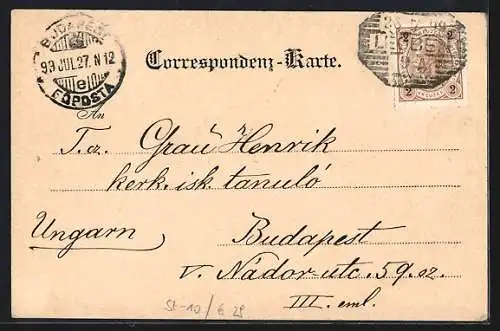 BUDAPEST
99 JUL. 27. N 12
e
FŐPOSTA
2 2
2 KREUZER 2
Correspondenz-Karte.
An
T. a. Grau Henrik
kerk. isk. tanuló
Ungarn
Budapest
V. Nádor-utc. 59. sz.
III. eml.
St-10 / G 29